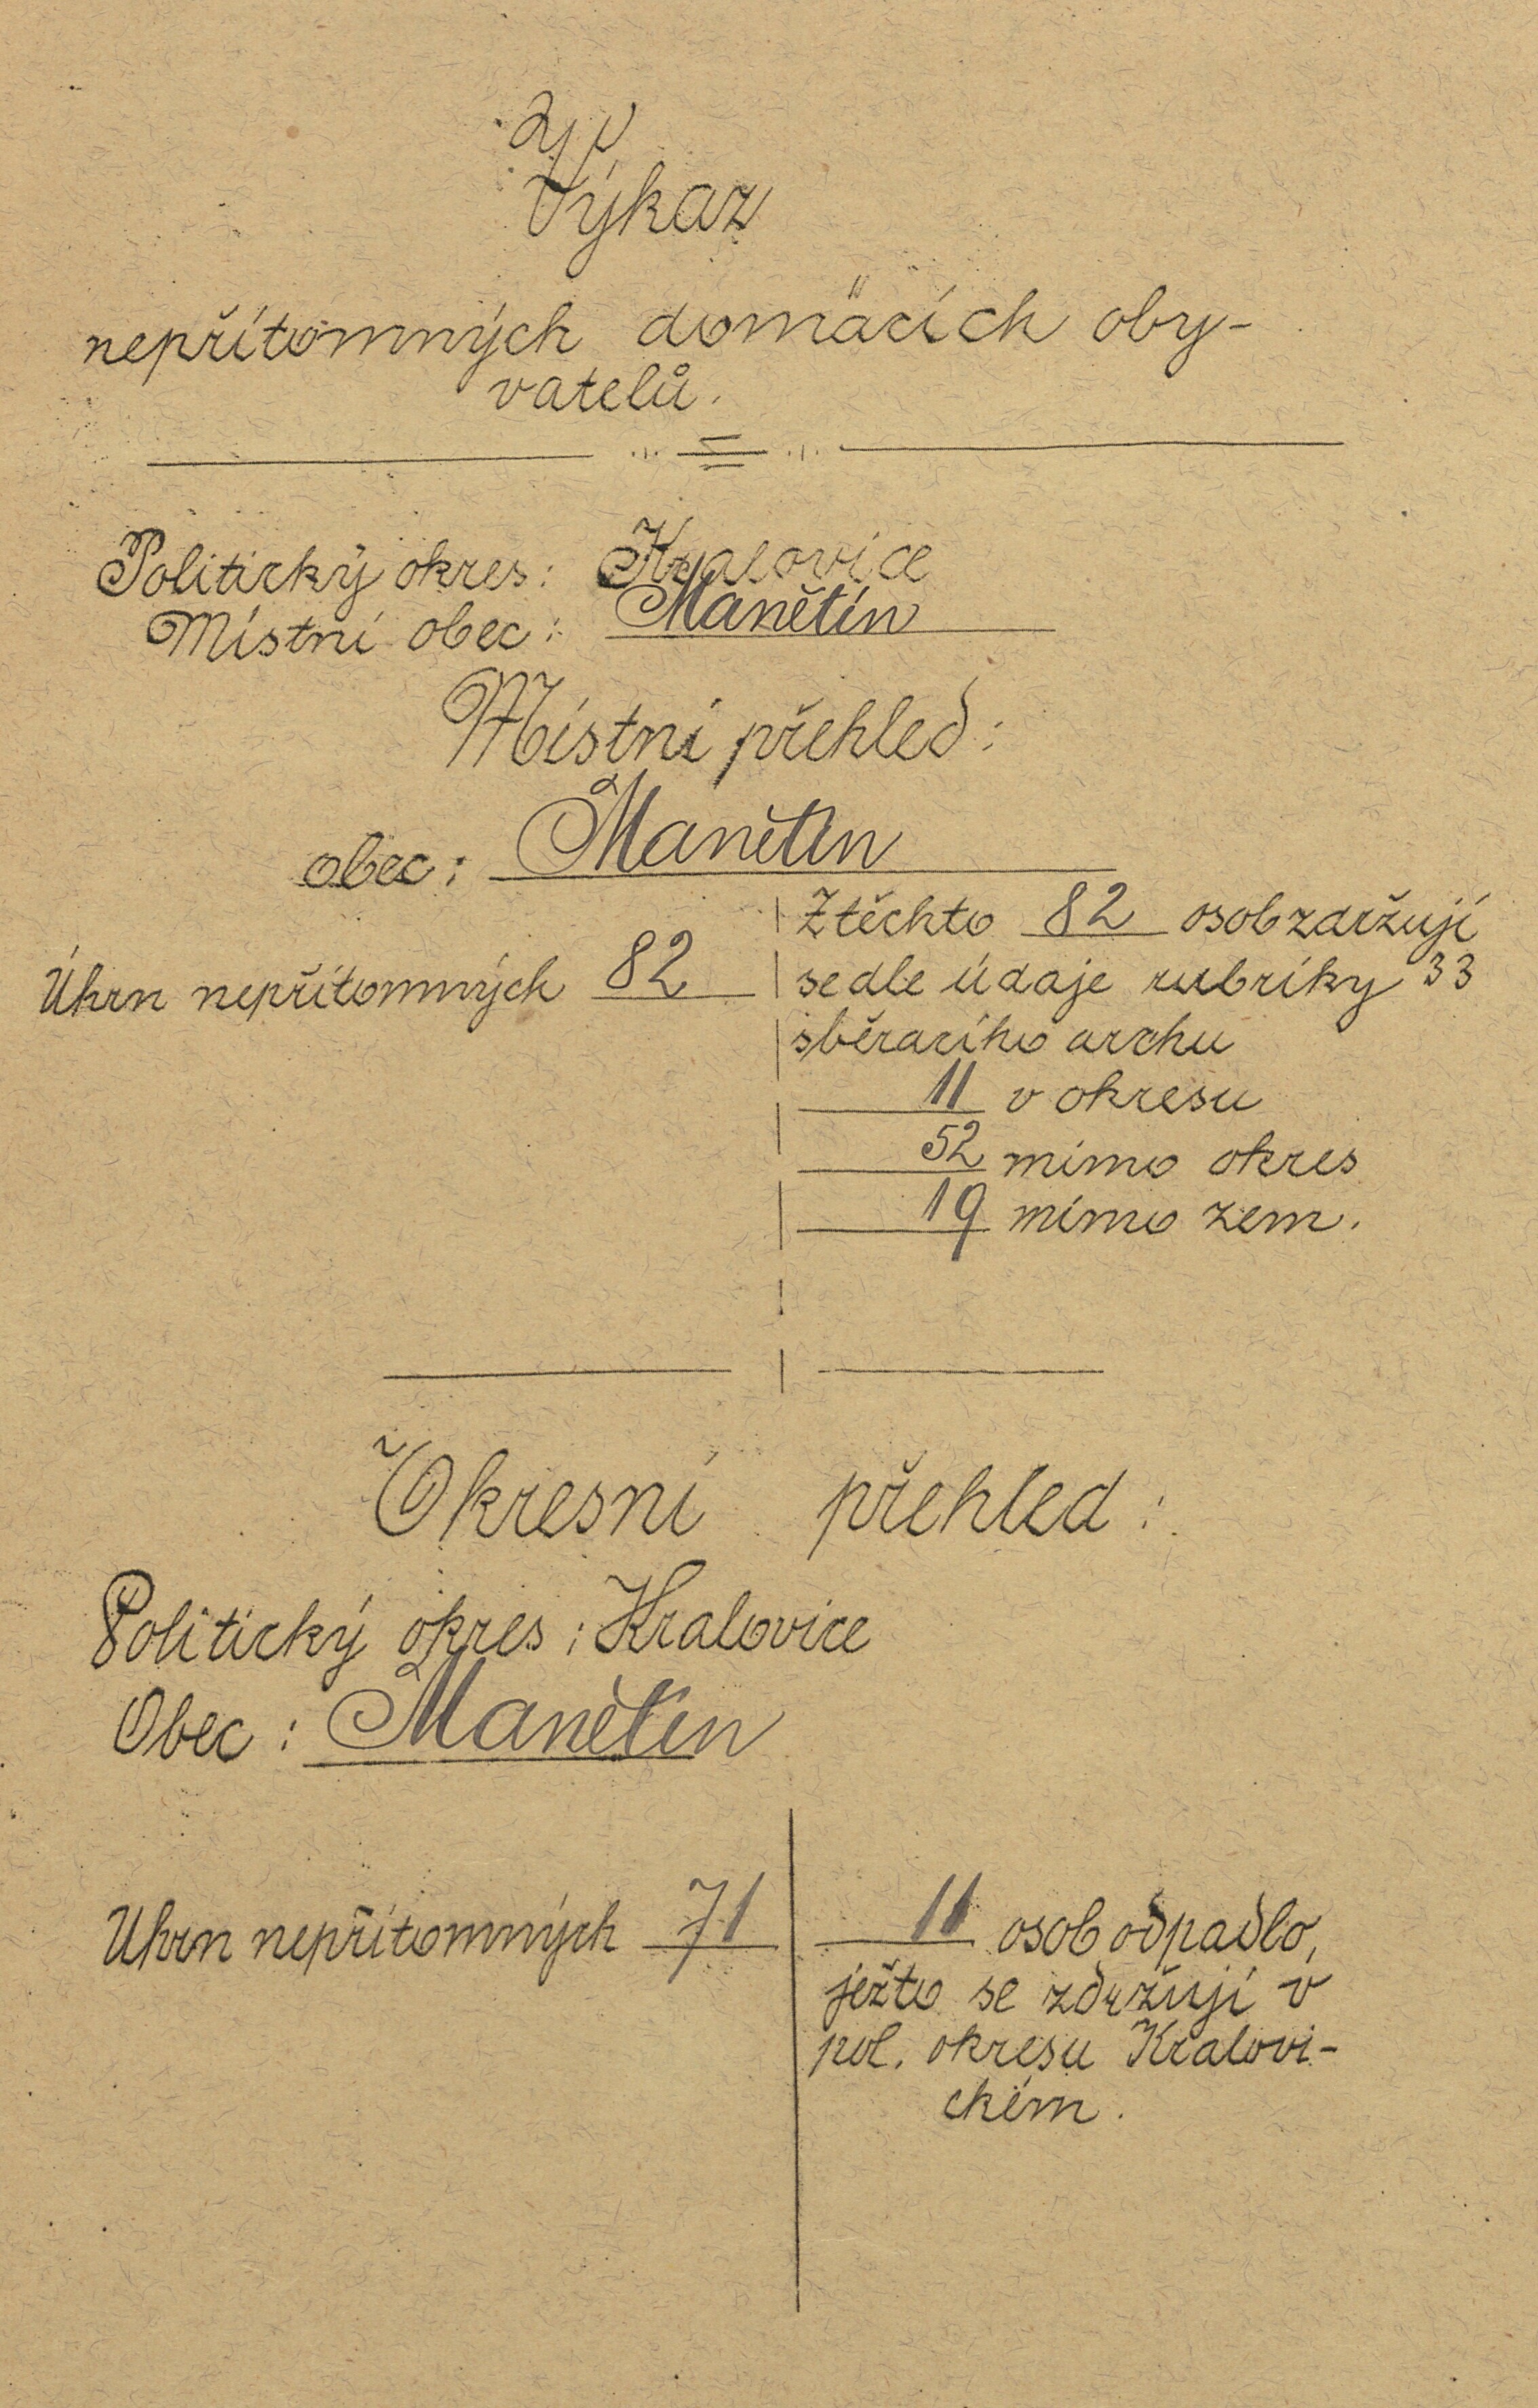 Výkaz
nepřítomných domácích oby-
vatelů.
Politický okres: Kralovice
Místní obec: Manětín
Místní přehled:
obec: Manětín
Úhrn nepřítomných 82
Z těchto 82 osob zdržují
se dle údaje rubriky 33
sběracího archu
11 v okresu
52 mimo okres
19 mimo zem.
Okresní přehled:
Politický okres: Kralovice
Obec: Manětín
Uhrn nepřítomných 71
11 osob odpadlo,
ježto se zdržují v
pol. okresu Kralovi-
ckém.